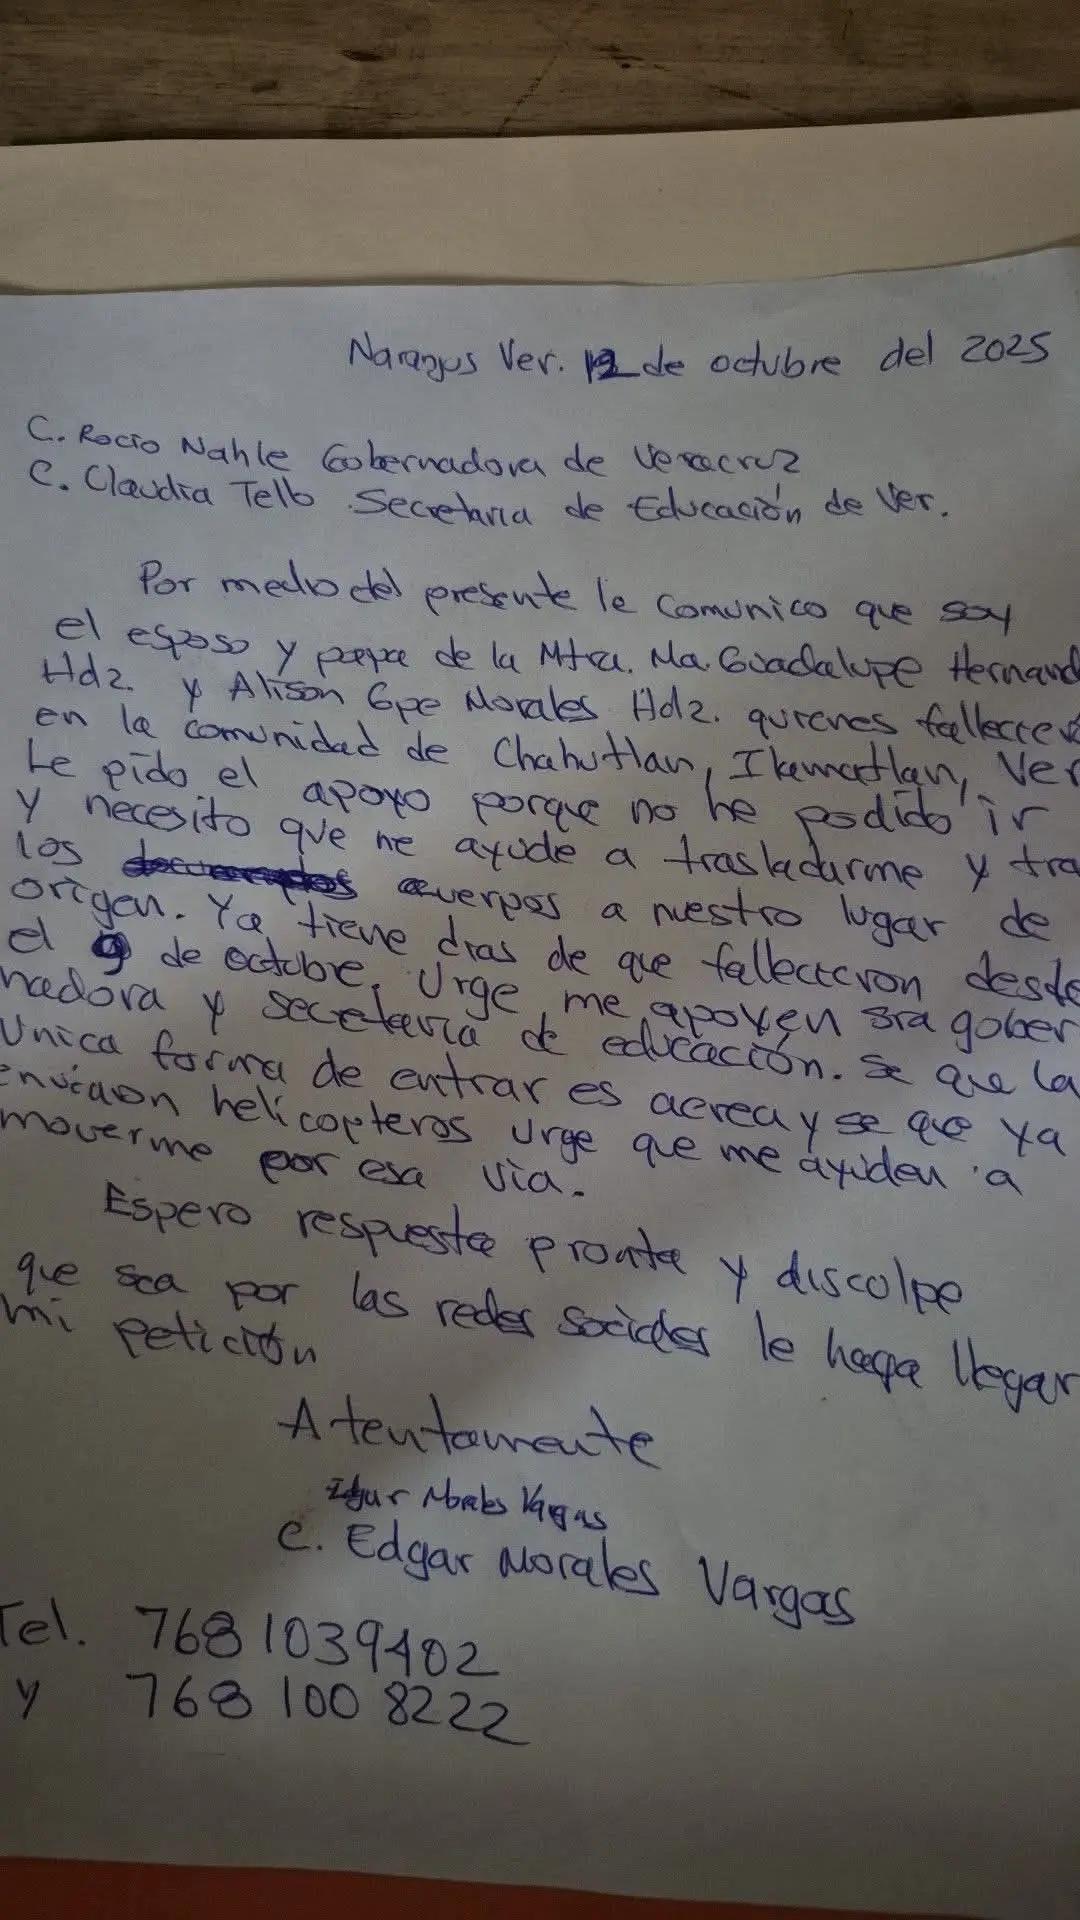 Naranjos Ver. 12 de octubre del 2025
C. Rocio Nahle Gobernadora de Veracruz
C. Claudia Tello Secretaria de Educación de Ver.
Por medio del presente le comunico que soy
el esposo y papa de la Mtra. Ma. Guadalupe Hernand
Hdz. y Alison Gpe Morales Hdz. quienes falleciero
en la comunidad de Chahutlan, Ilamatlan, Ver
Le pido el apoyo porque no he podido ir
y necesito que me ayude a trasladarme y tra
los cuerpos a nuestro lugar de
origen. Ya tiene dias de que fallecieron desde
el 9 de octubre. Urge me apoyen sra gober
nadora y secretaria de educación. se que la
Unica forma de entrar es aerea y se que ya
enviaron helicopteros urge que me ayuden a
moverme por esa via.
Espero respuesta pronta y disculpe
que sea por las redes sociales le haga llegar
mi petición
Atentamente
Edgar Morales Vargas
C. Edgar Morales Vargas
Tel. 768 1039402
y 768 100 8222